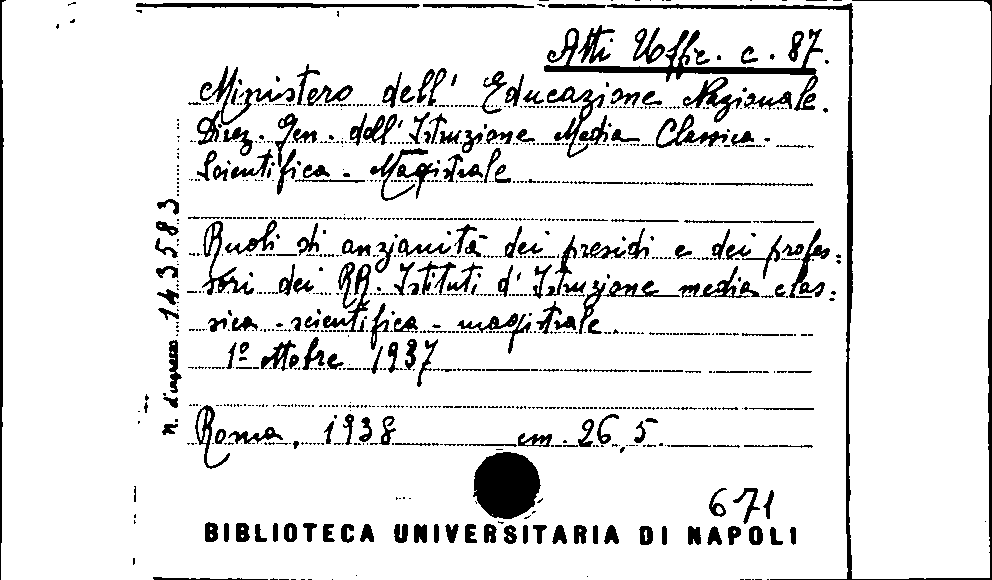 Atti Uffic. c. 87.
Ministero dell' Educazione Nazionale.
Direz. Gen. dell' Istruzione Media Classica -
Scientifica - Magistrale.
Ruoli di anzianità dei presidi e dei profes:
sori dei RR. Istituti d' Istruzione media clas:
sica - scientifica - magistrale.
1º ottobre 1937
Roma, 1938 cm. 26,5.
n. d'ingresso 143583
671
BIBLIOTECA UNIVERSITARIA DI NAPOLI